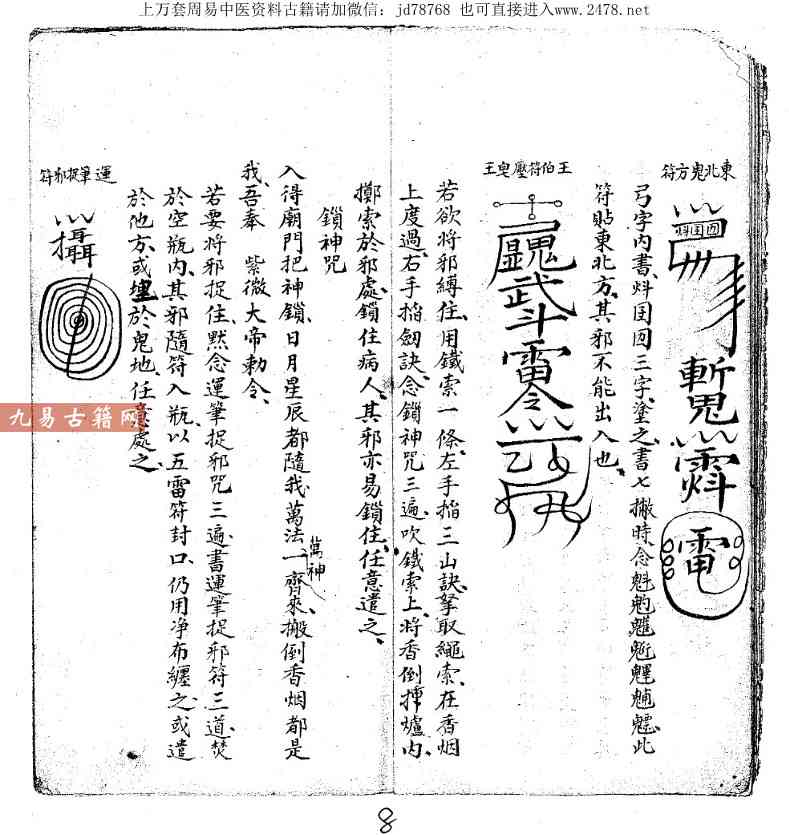 上万套周易中医资料古籍请加微信：jd78768 也可直接进入www.2478.net
東北鬼方符
弓字内書㪵囯囙三字塗之書七撇時念魁䰢魓此
符貼東北方其邪不能出入也
王伯符壓鬼王
武斗雷令
若欲將邪縛住用鐵索一條左手掐三山訣拏取繩索在香烟
上度過右手掐劍訣念鎖神咒三遍吹鐵索上將香倒擇爐内
擲索於邪處鎖住病人其邪亦易鎖住任意遣之
鎖神咒
入得廟門把神鎖日月星辰都隨我萬法一齊來搬倒香烟都是
萬神
我吾奉 紫微大帝勅令
若要將邪捉住黙念運筆捉邪咒三遍書運筆捉邪符三道焚
於空瓶内其邪隨符入瓶以五雷符封口仍用净布纏之或遣
於他方或埋於鬼地任意處之
運筆捉邪符
攝
九易古籍网
8